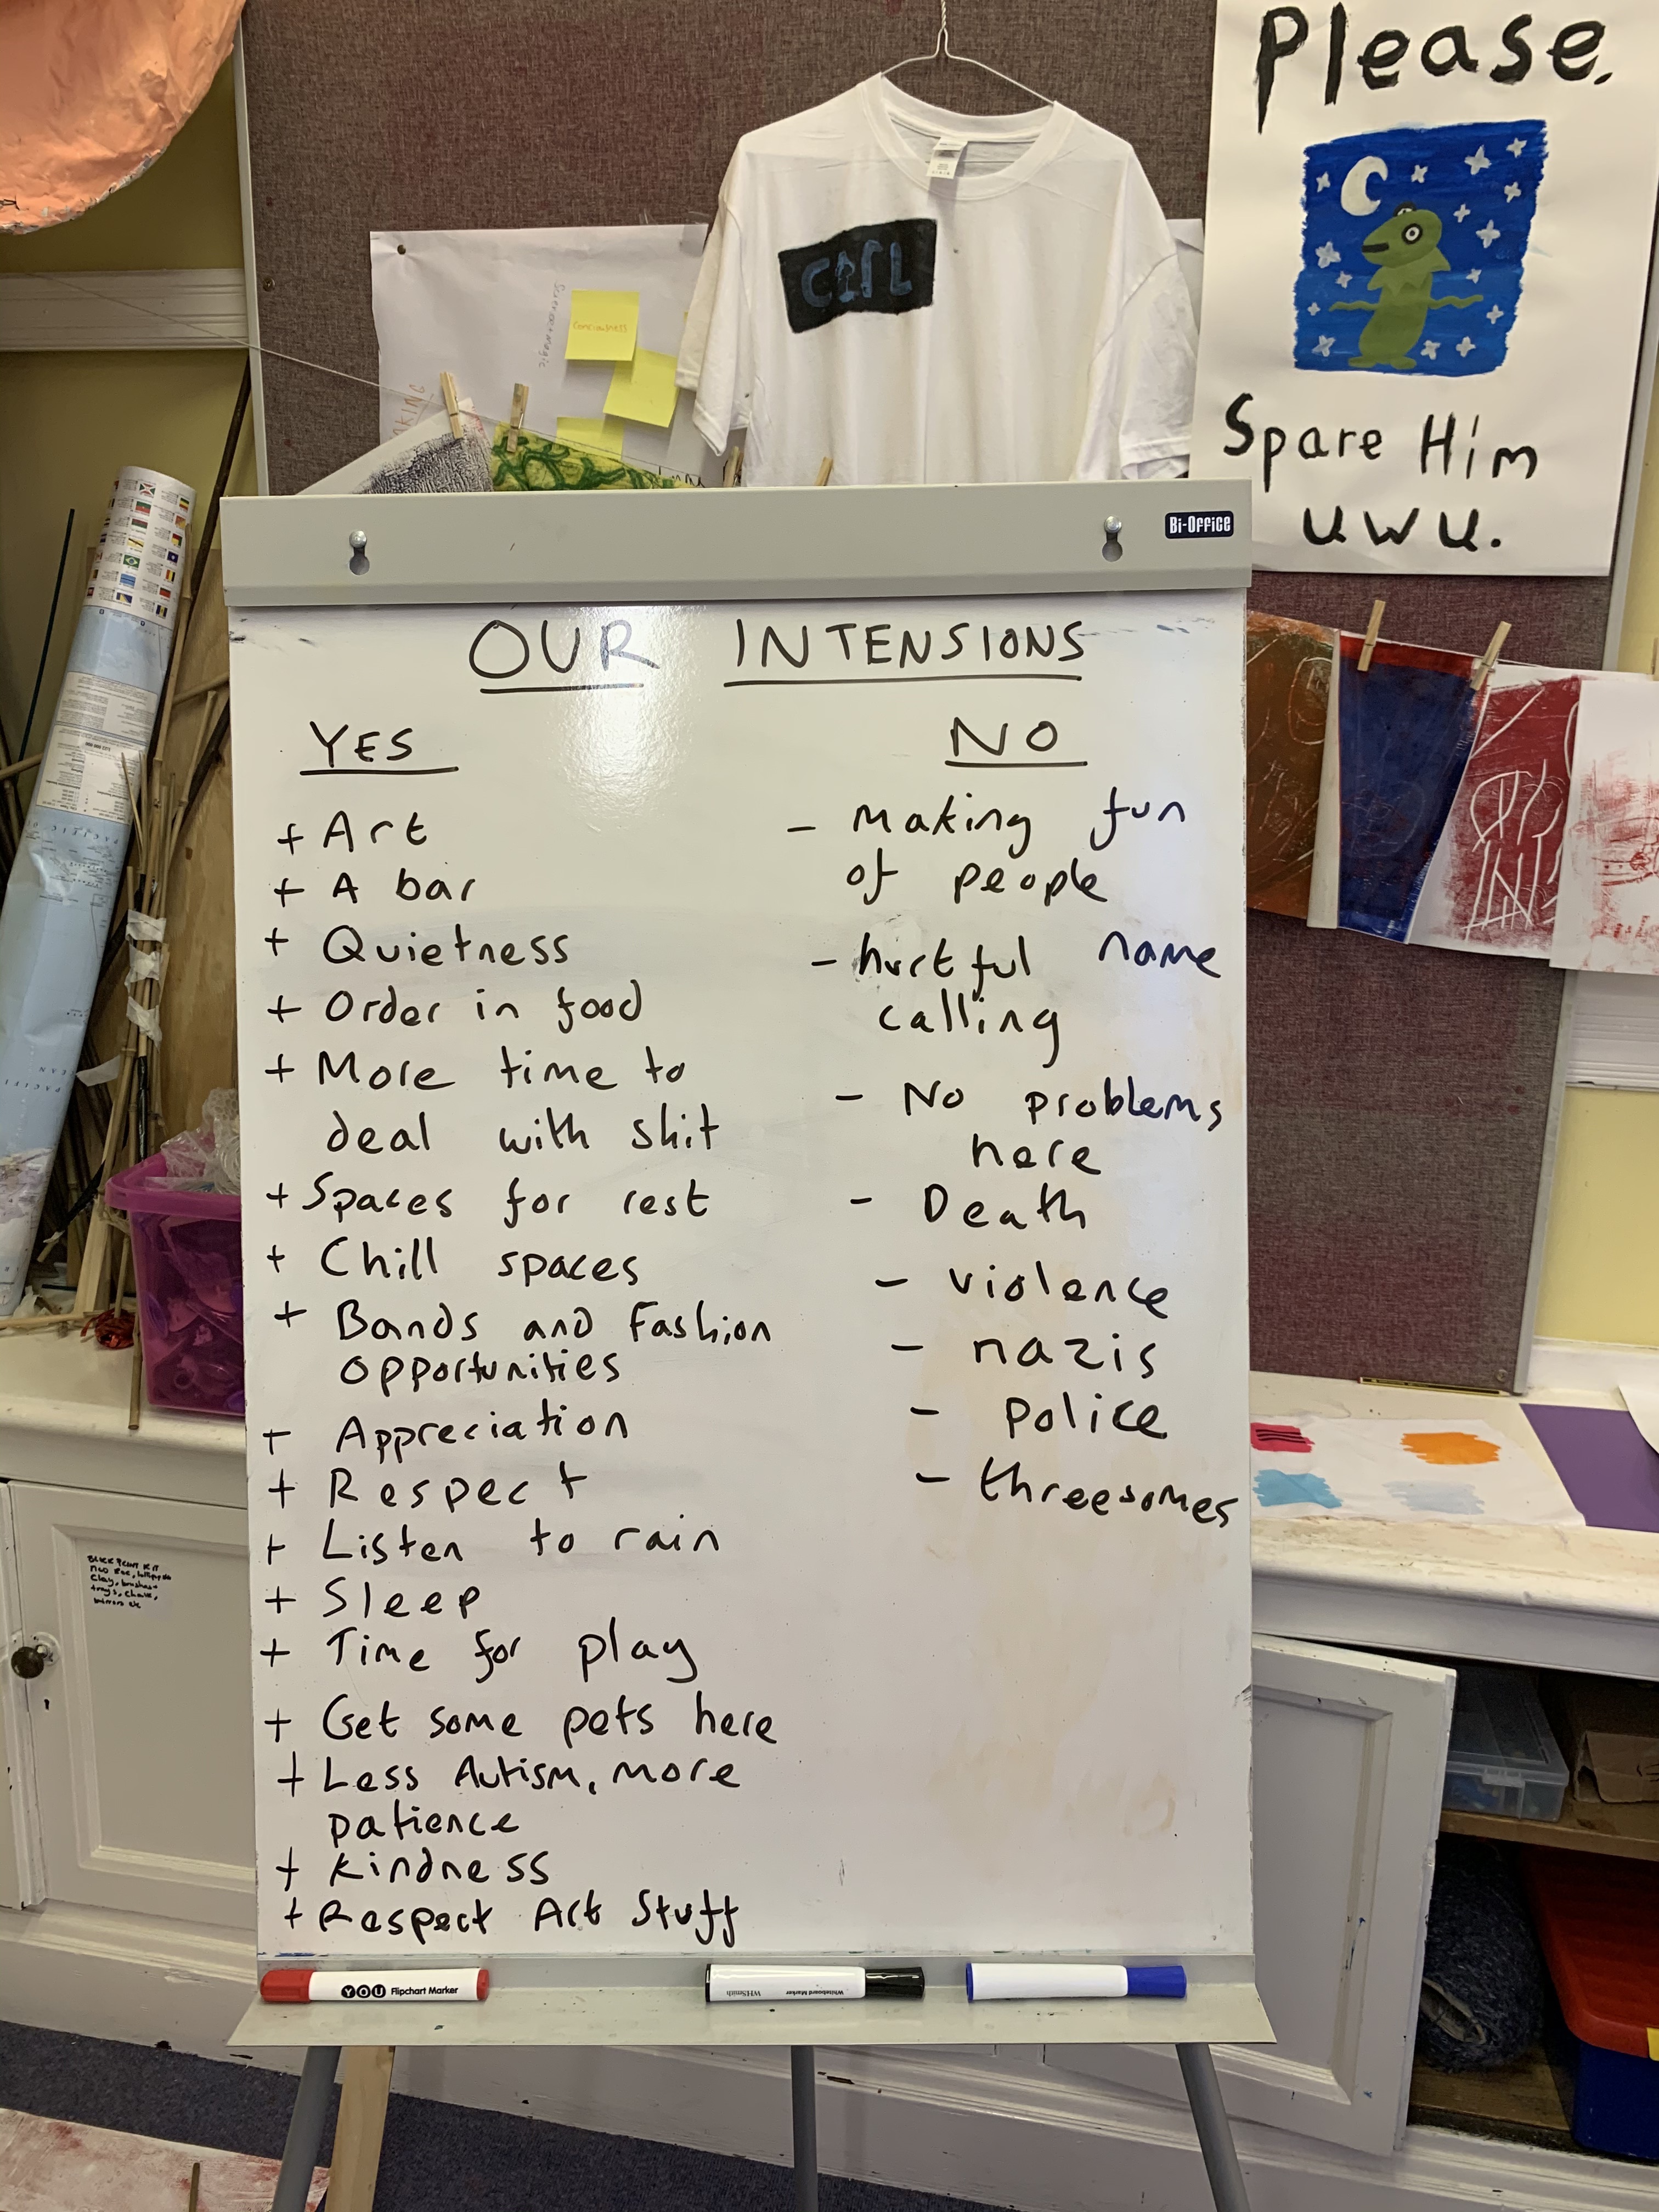 Please.
Spare Him
uwu.
conciousness
Bi-Office
OUR INTENSIONS
YES
+ Art
+ A bar
+ Quietness
+ Order in food
+ More time to
deal with shit
+ Spaces for rest
+ Chill spaces
+ Bands and Fashion
opportunities
+ Appreciation
+ Respect
+ Listen to rain
+ Sleep
+ Time for play
+ Get some pets here
+ Less Autism, more
patience
+ Kindness
+ Respect Art Stuff
NO
- Making fun
of people
- hurtful name
calling
- No problems
here
- Death
- violence
- nazis
- police
- threesomes
YOU Flipchart Marker
WHSmith Whiteboard Marker